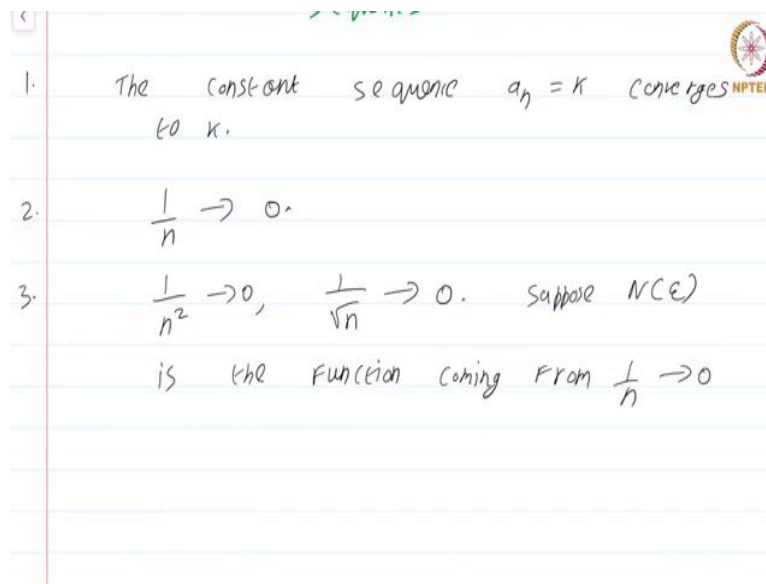 1. The constant sequenc aₙ = K converges
to K.
NPTEL
2. 1/n → 0.
3. 1/n² → 0, 1/√n → 0. Suppose N(ε)
is the function coming from 1/n → 0